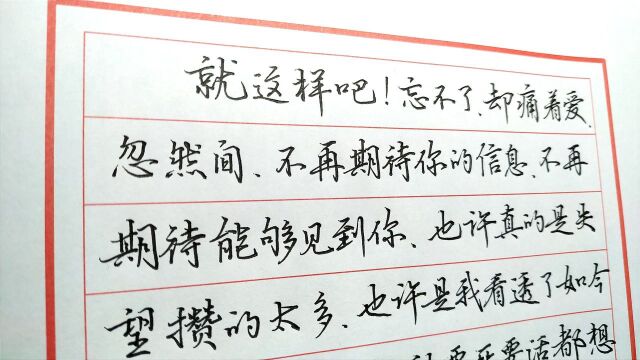 就这样吧！忘不了、却痛着爱、
忽然间、不再期待你的信息、不再
期待能够见到你、也许真的是失
望攒的太多、也许是我看透了如今
要话都想